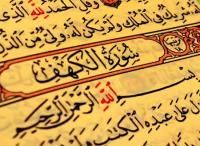 وَقُلِ الْحَمْدُ لِلَّهِ الَّذِي
فِي الْمُلْكِ وَلَمْ يَكُن لَّهُ وَلِيٌّ مِّنَ الذُّلِّ
سُورَةُ الْكَهْفِ
بِسْمِ اللَّهِ الرَّحْمَٰنِ الرَّحِيمِ
عَلَىٰ عَبْدِهِ الْكِتَٰبَ وَلَمْ